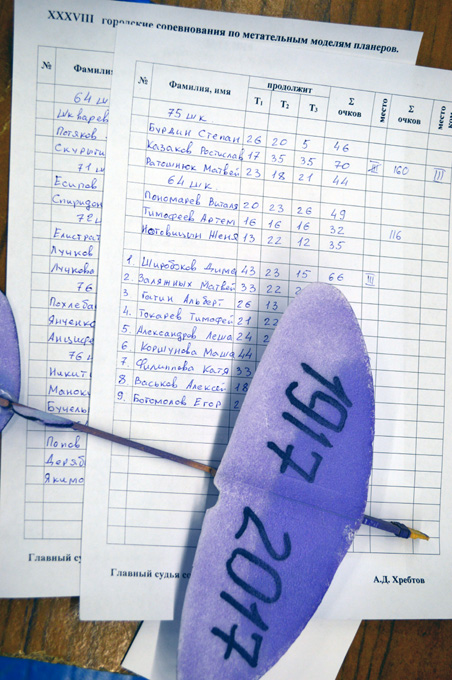 XXXVIII городские соревнования по метательным моделям планеров.
№ Фамили
64 шк
Шкварев
Потяков
Скурыти
71 ш
Есипов
Спиридон
72 ш
Елистрат
Лучков
Лучкова
76
Похлеба
Янченко
Анциф
76 ш
Никит
Маноку
Бучель
Попов
Деряб
Якимо
Главный су
№ Фамилия, имя продолжит Σ очков место Σ очков место ком
Т₁ Т₂ Т₃
75 шк
Бурдин Степан 26 20 5 46
Казаков Ростислав 17 35 35 70 III 160 III
Ратошнюк Матвей 23 18 21 44
64 шк.
Пономарев Виталя 20 23 26 49
Тимофеев Артем 16 16 16 32 116
Женя 13 22 12 35
1. Широбоков Дима 43 23 15 66 III
2. Валяжных Матвей 33 22 2
3 Гатин Альберт 26 13
4. Токарев Тимофей 21 22
5. Александров Леша 24 2
6. Коршунова Маша 44
7. Филиппова Катя 33
8. Васьков Алексей 18
9. Богомолов Егор 2
Главный судья со
А.Д. Хребтов
1917
2017